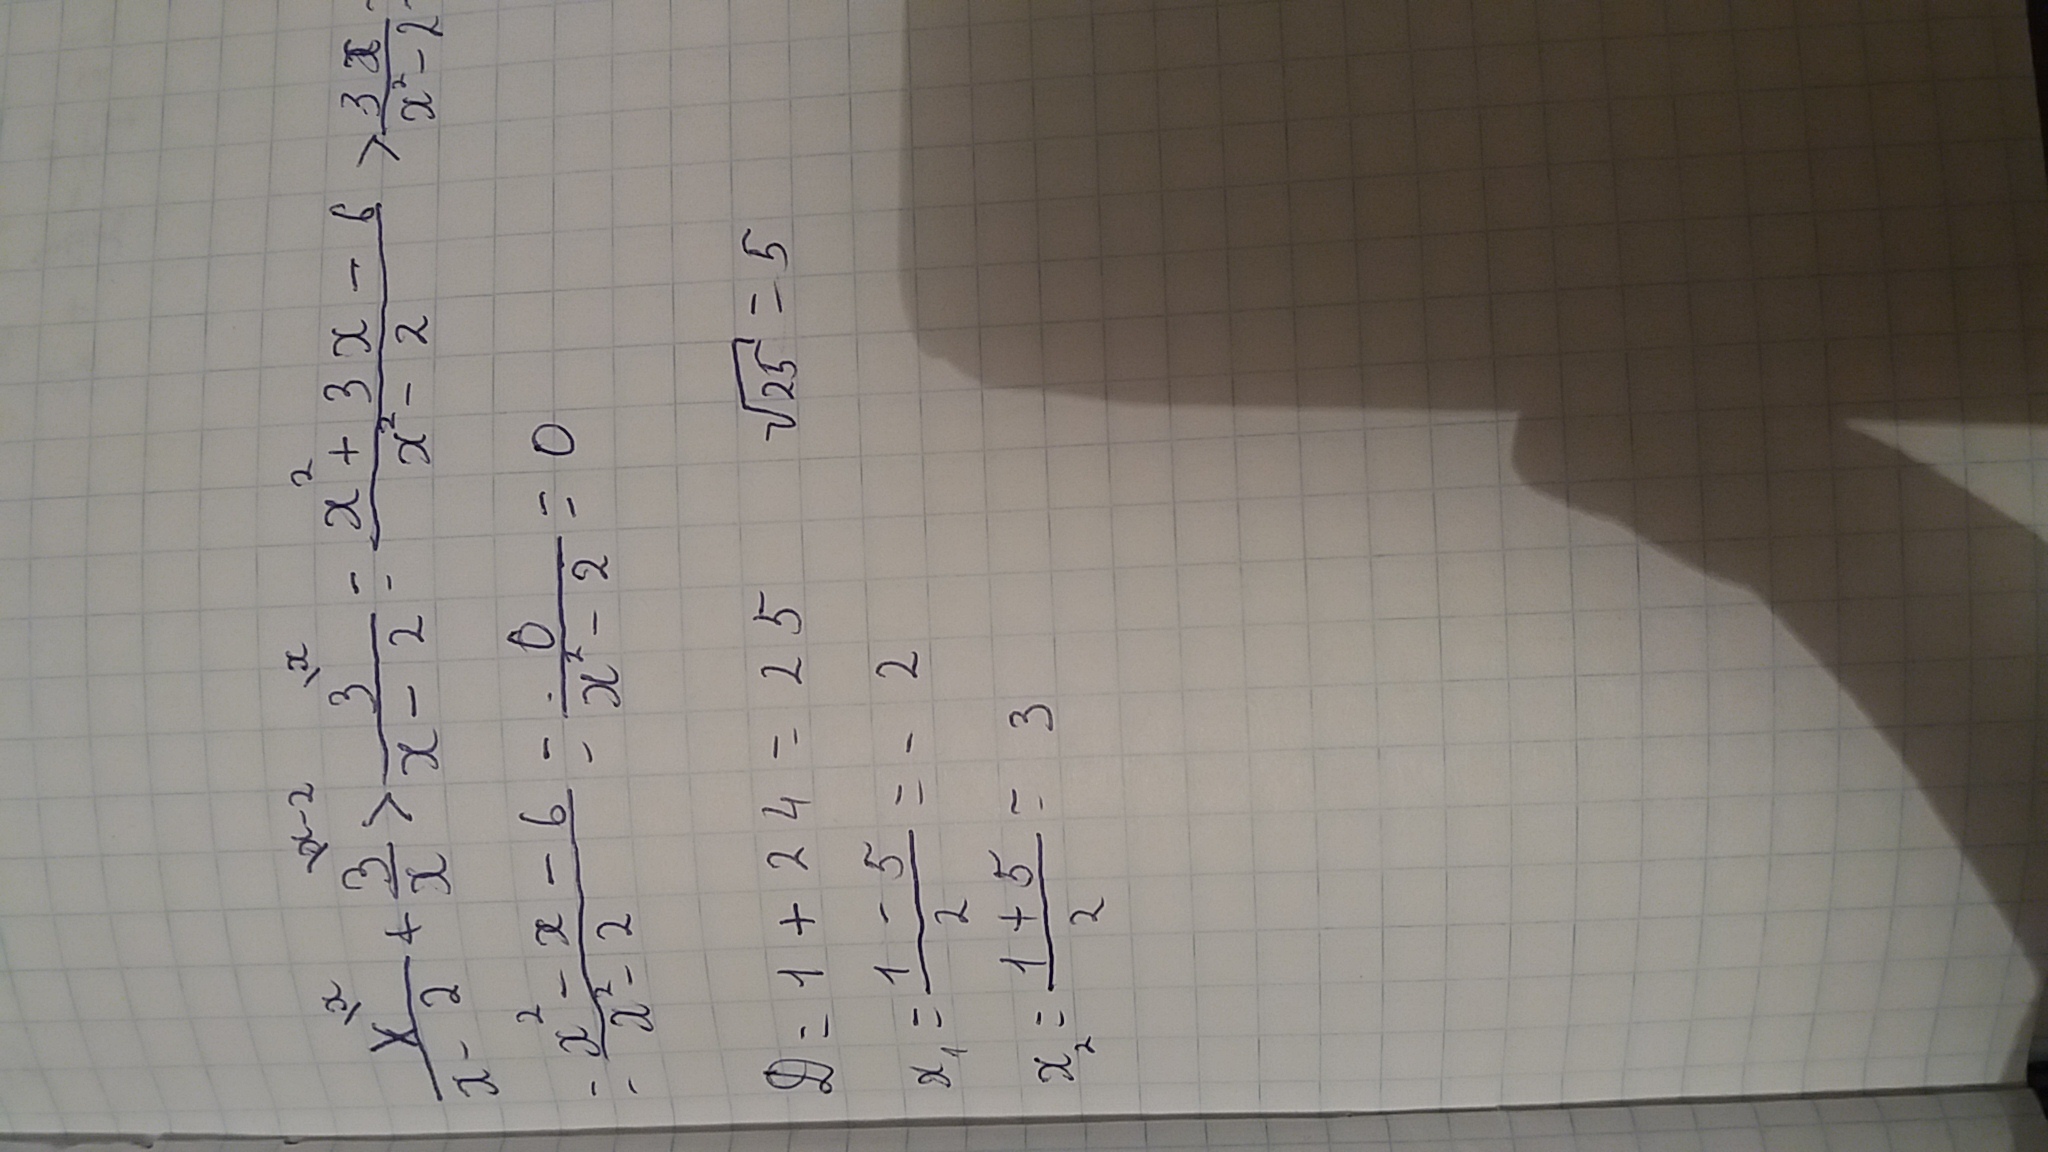 x\x/x-2 + 3\x-2/x > 3\x/x-2 = x²+3x-6/x²-2 > 3x/x²-2
= x²-x-6/x²-2 = 0/x²-2 = 0
D = 1 + 24 = 25 √25 = 5
x₁ = 1-5/2 = -2
x₂ = 1+5/2 = 3